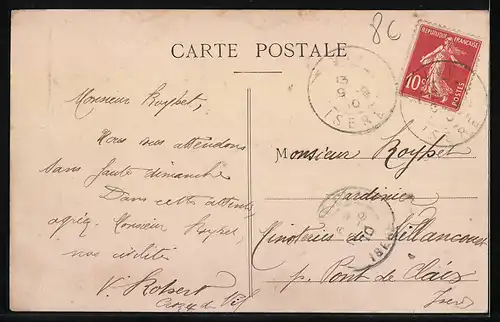 8C
CARTE POSTALE
REPUBLIQUE FRANÇAISE
10c
POSTES
13
9
10
ISERE
Monsieur Roybet,
Nous vous attendons
sans faute dimanche
Dans cette attente
agréez Monsieur Roybet,
nos civilités
V. Robert
Monsieur Roybet
Jardinier
Minoteries de Villancourt
p. Pont de Claix
Isère